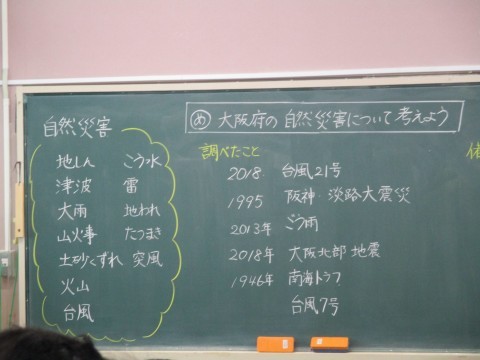 自然災害
地しん　こう水
津波　雷
大雨　地われ
山火事　たつまき
土砂くずれ　突風
火山
台風
め 大阪府の自然災害について考えよう
調べたこと
2018　台風21号
1995　阪神・淡路大震災
2013年　ごう雨
2018年　大阪北部地震
1946年　南海トラフ
台風7号